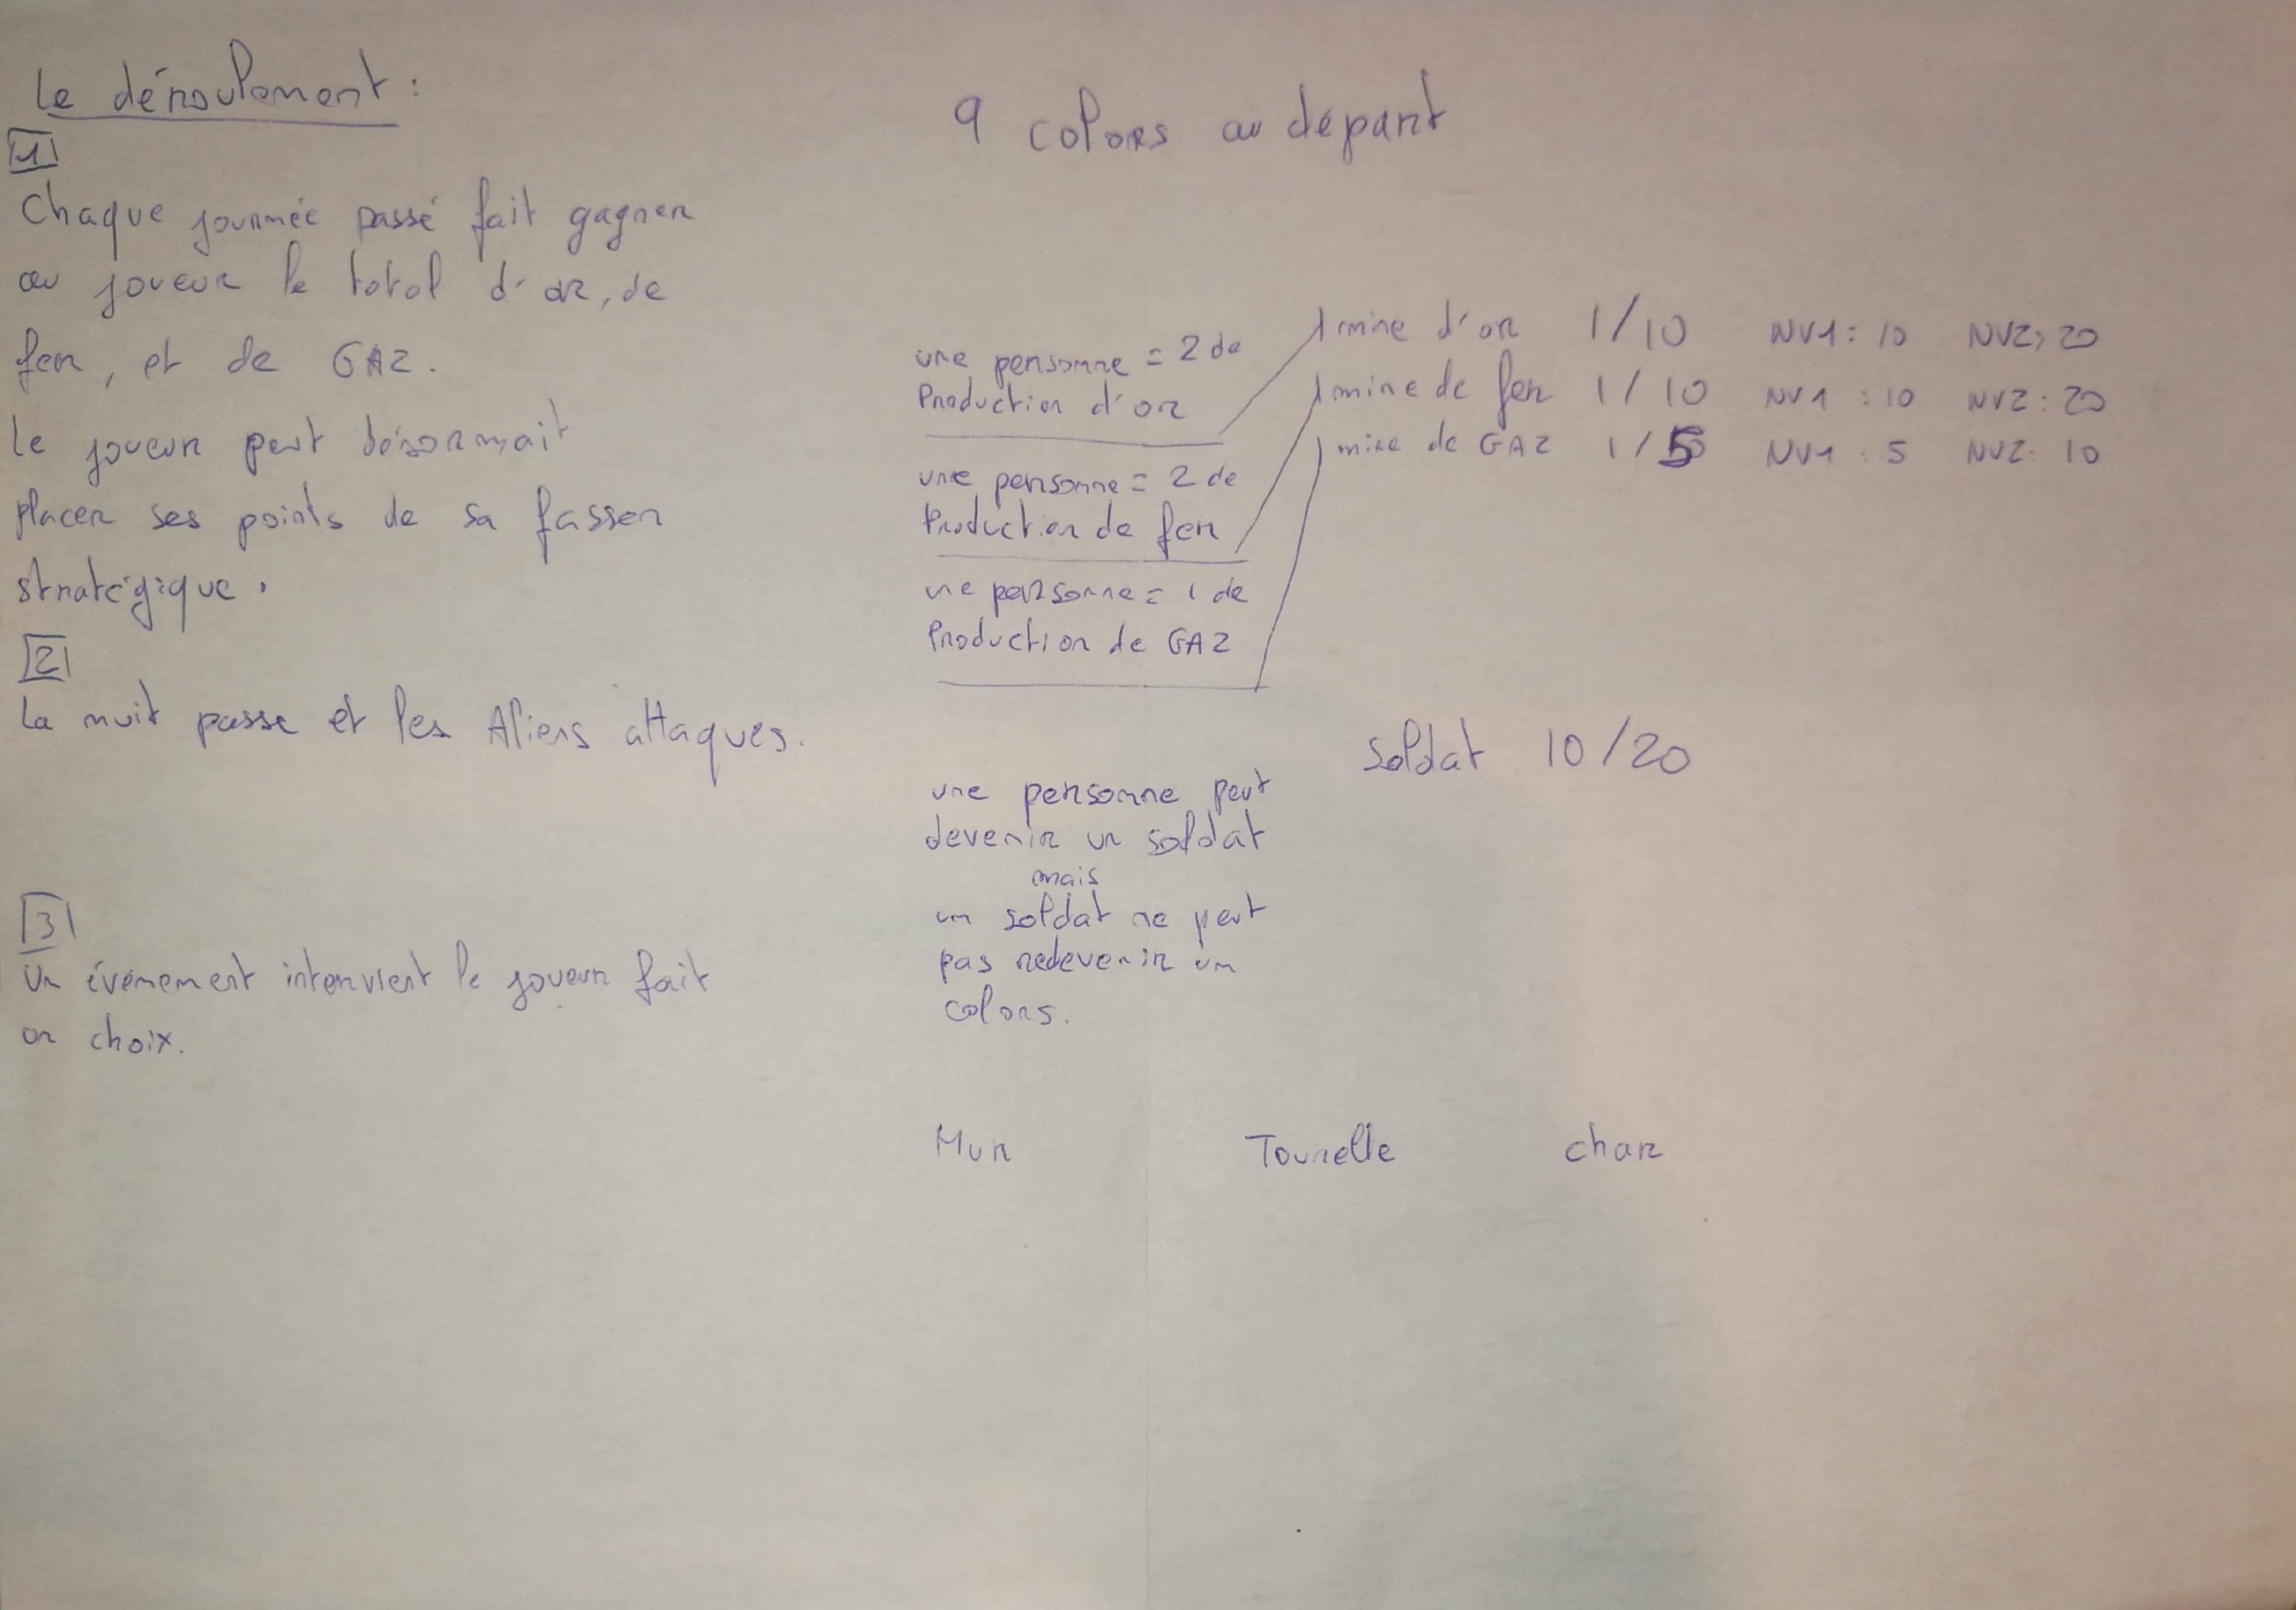 Le déroulement :
1
Chaque journnée passé fait gagner
au joueur le total d'or, de
fer, et de GAZ.
le joueur peut désormait
placer ses points de sa fasson
stratégique.
2
La nuit passe et les Aliens attaques.
3
Un évènement intervient le joueur fait
un choix.
9 colons au départ
une personne = 2 de
Production d'or
une personne = 2 de
Production de fer
une personne = 1 de
Production de GAZ
1 mine d'or 1/10 NV1 : 10 NV2 : 20
1 mine de fer 1/10 NV1 : 10 NV2 : 20
1 mine de GAZ 1/5 NV1 : 5 NV2 : 10
Soldat 10/20
une personne peut
devenir un soldat
mais
un soldat ne peut
pas redevenir un
colons.
Mur Tourelle char